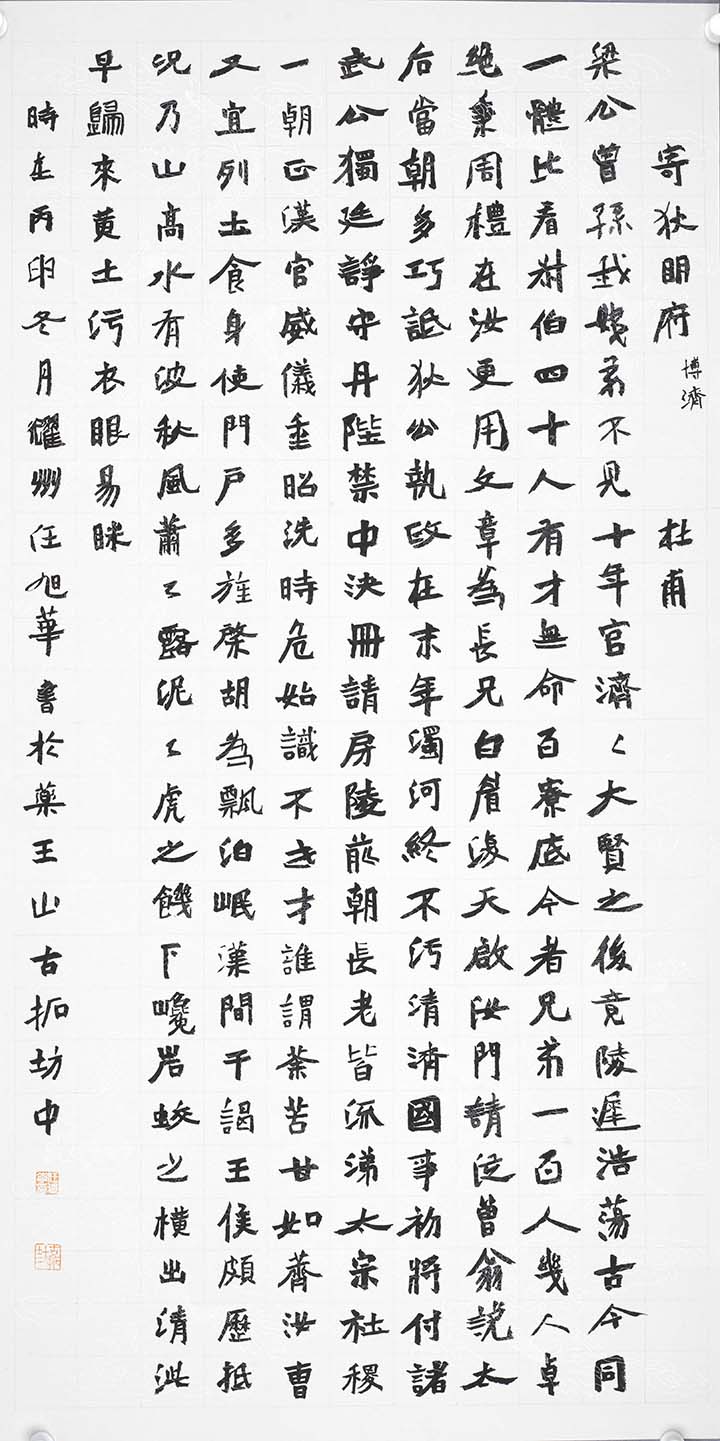 寄狄明府 博濟 杜甫
梁公曾孫我姨弟不見十年官濟〻大賢之後竟陵遲浩蕩古今同
一體比看叔伯四十人有才無命百寮底今者兄弟一百人幾人卓
絕秉周禮在汝更用文章為長兄白眉復天啟汝門請從曾翁說太
后當朝多巧詆狄公執政在末年濁河終不污清濟國事初將付諸
武公獨廷諍守丹陛禁中決冊請房陵前朝長老皆流涕太宗社稷
一朝正漢官威儀重昭洗時危始識不世才誰謂荼苦甘如薺汝曹
又宜列土食身使門戶多旌棨胡為飄泊岷漢間干謁王侯頗歷抵
況乃山高水有波秋風蕭〻露泥〻虎之饑下巉岩蛟之橫出清泚
早歸來黃土污衣眼易眯
時在丙申冬月耀州任旭華書於藥王山古拓坊中